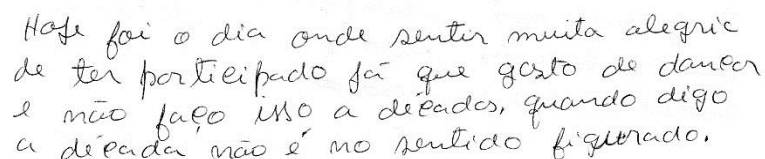 Hoje foi o dia onde sentir muita alegria
de ter participado já que gosto de dançar
e não faço isso a décadas, quando digo
a década não é no sentido figurado.